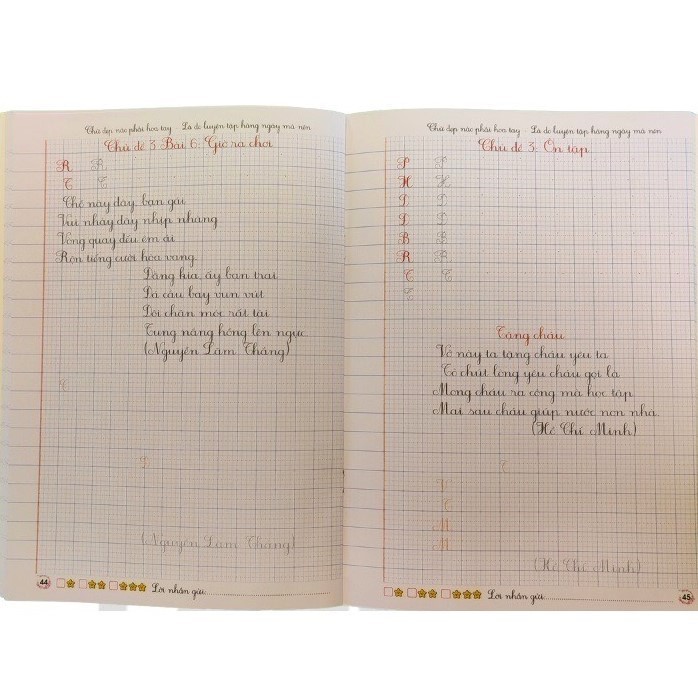 Chữ đẹp nào phải hoa tay - Là do luyện tập hàng ngày mà nên
Chủ đề 3 Bài 6: Giờ ra chơi
R R
C C
Chỗ này dây, bạn gái
Vui nhảy dây nhịp nhàng
Vòng quay đều êm ái
Rộn tiếng cười hòa vang
Đàng kia, ấy bạn trai
Đá cầu bay vun vút
Đôi chân móc rất tài
Tung nắng hồng lên ngực
(Nguyễn Lâm Thắng)
C
(Nguyễn Lâm Thắng)
44 Lời nhắn gửi:
Chữ đẹp nào phải hoa tay - Là do luyện tập hàng ngày mà nên
Chủ đề 3: Ôn tập
P P
H H
D D
Đ Đ
B B
R R
C C
C
Tặng cháu
Vở này ta tặng cháu yêu ta
Tỏ chút lòng yêu cháu gọi là
Mong cháu ra công mà học tập
Mai sau cháu giúp nước non nhà
(Hồ Chí Minh)
C
V
C
M
M
(Hồ Chí Minh)
Lời nhắn gửi: 45